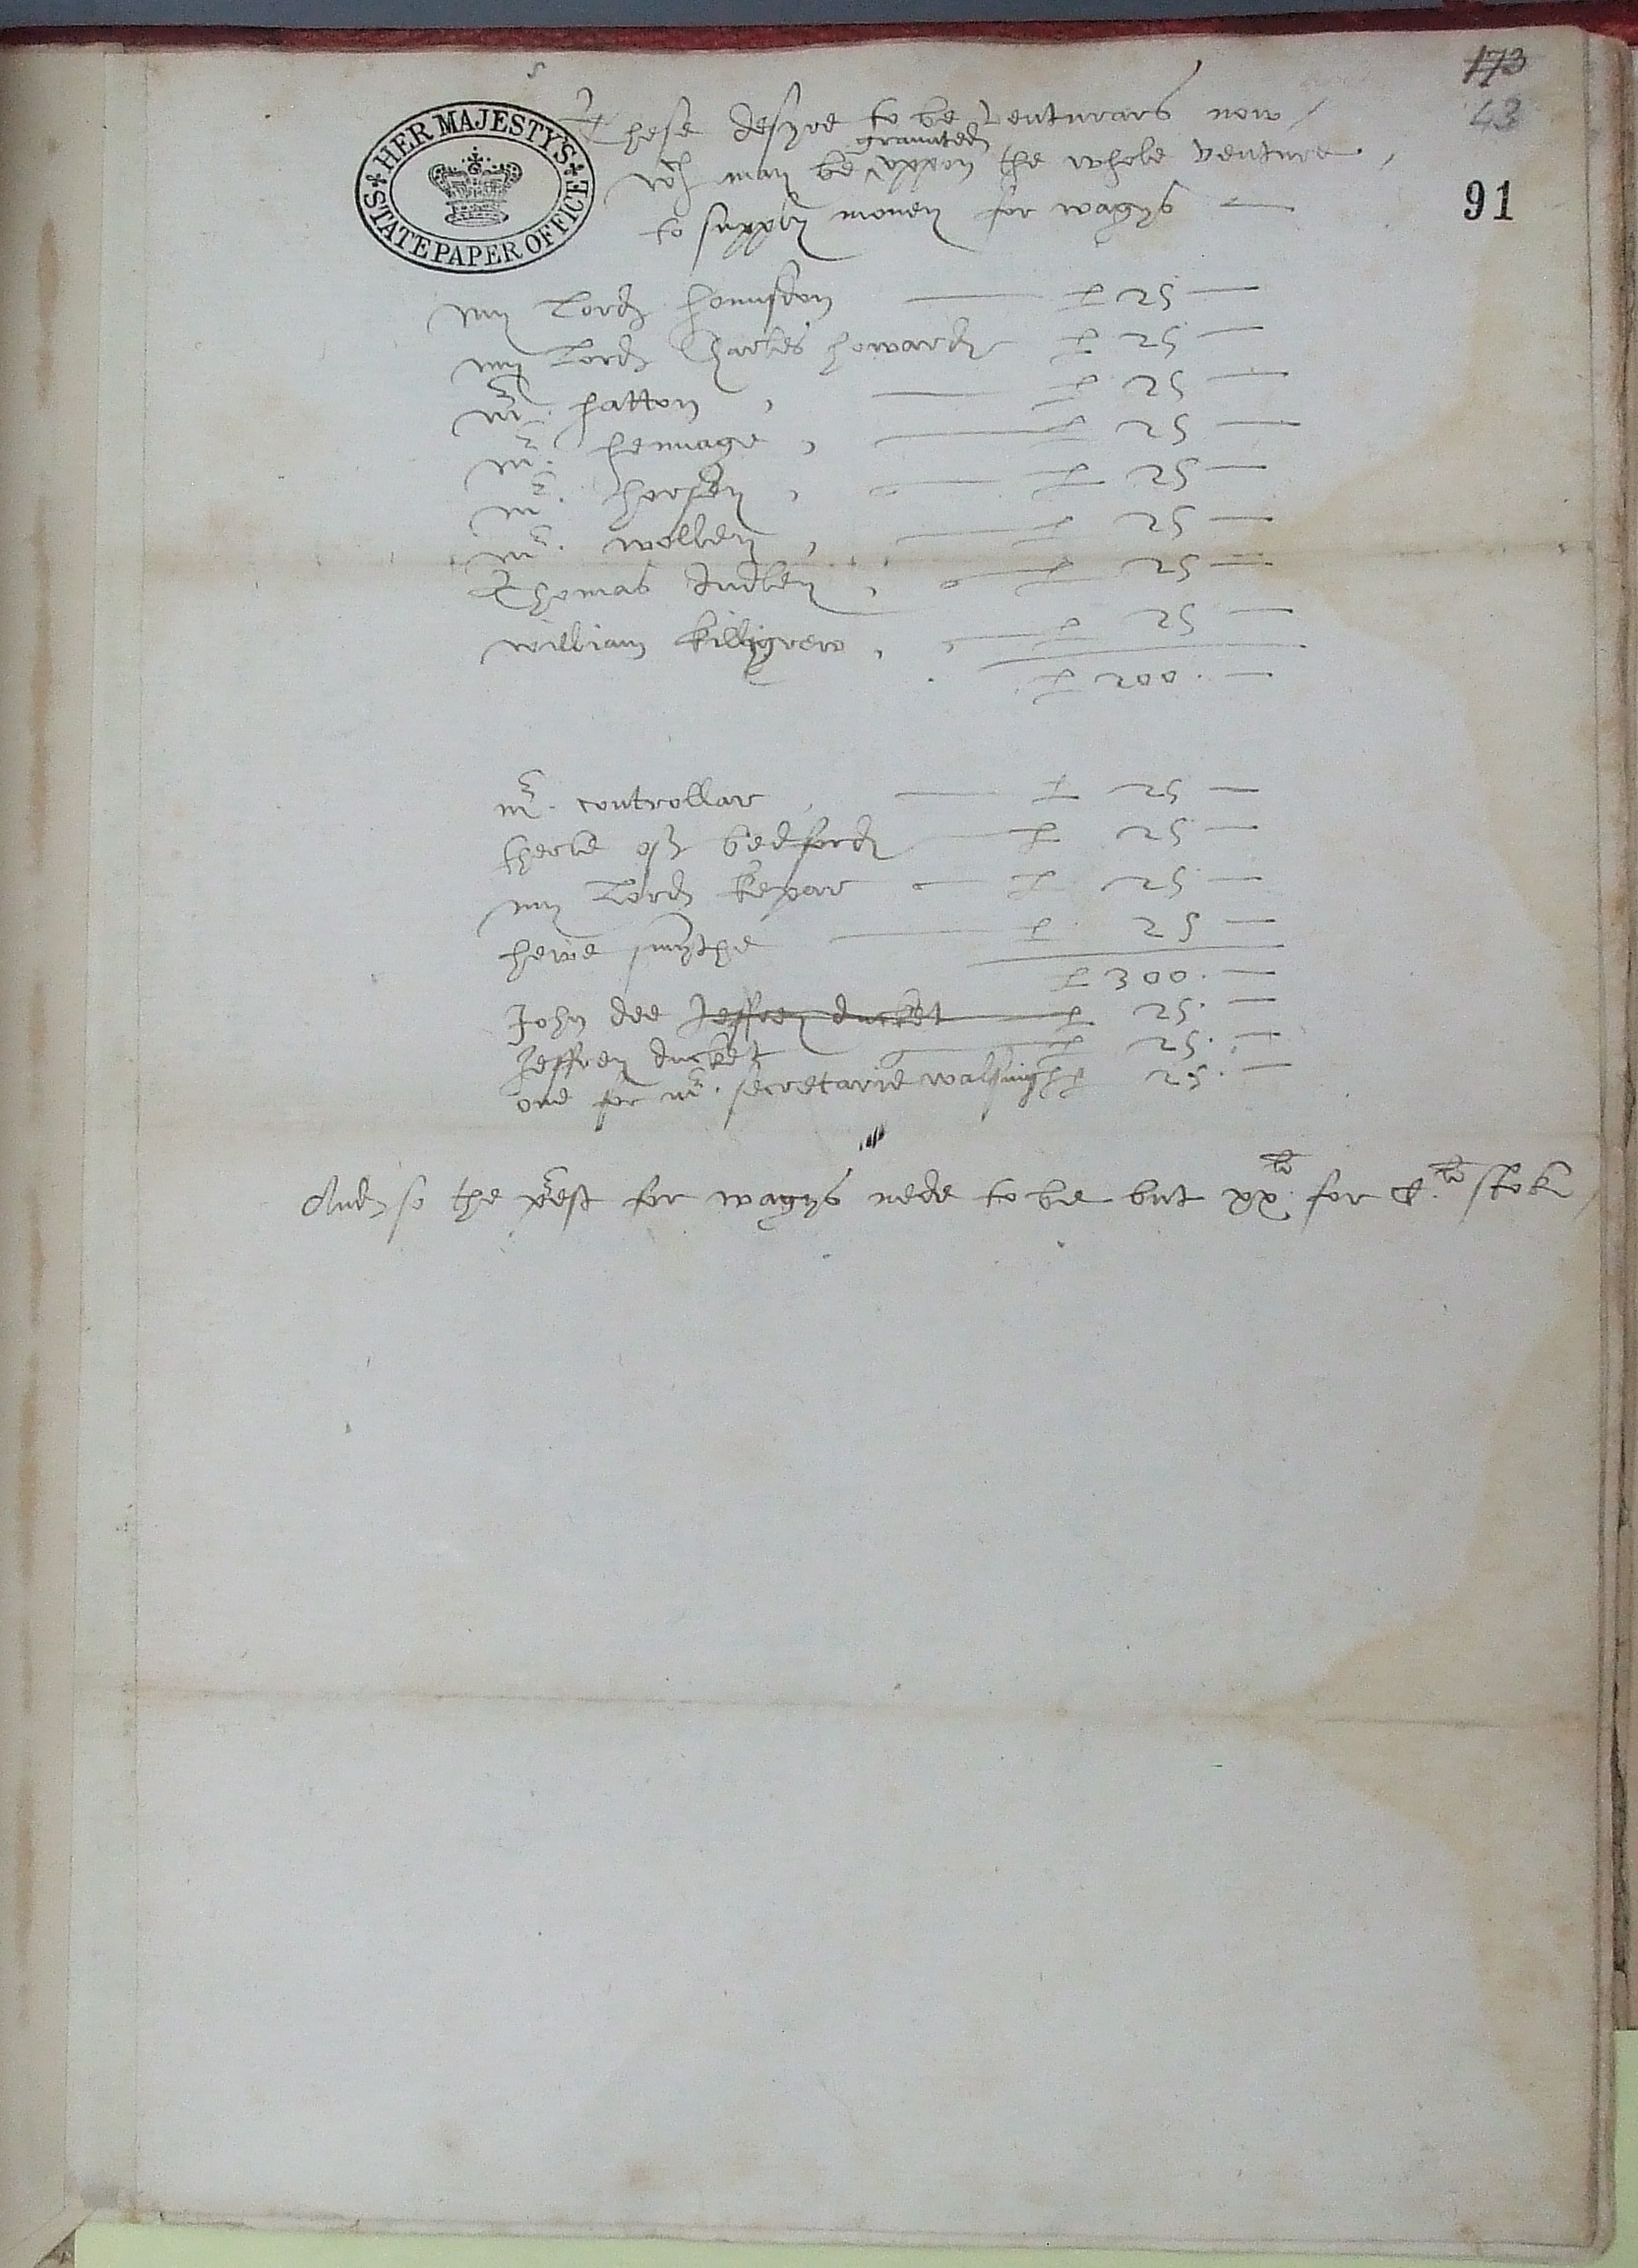 173
43
HER MAJESTY'S STATE PAPER OFFICE
91
These desyre to be venturars now /
granuted
wch may be uppon the whole venture,
to supply money for wagys —
my Lord hounsdon — £ 25 —
my Lord Charles howard £ 25 —
mr. hatton, — £ 25 —
mr. hennage, — £ 25 —
mr. horsey, — £ 25 —
mr. wolley, — £ 25 —
Thomas dudley, — £ 25 —
william killigrew, — £ 25 —
£ 200. —
mr. controllar, — £ 25 —
therle off bedford — £ 25 —
my Lord kepar — £ 25 —
hewe smythe — £ 25 —
£ 300. —
John dee Jeffrey ducket — £ 25. —
Jeffrey ducket — £ 25. —
one for mr. secretarie walsingh £ 25. —
And so the rest for wagys nede to be but xx li. for C. li stok /